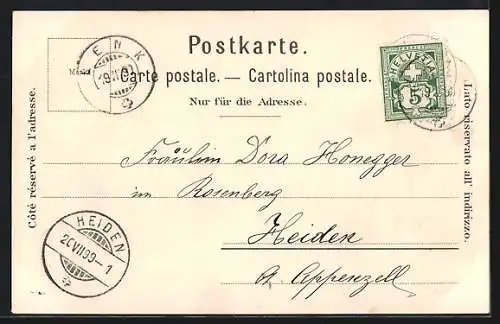 Postkarte.
Carte postale. — Cartolina postale.
Nur für die Adresse.
Côté réservé à l'adresse.
Lato riservato all' indirizzo.
ENK
HELVETIA
5
Fräulein Dora Honegger
im Rosenberg
Heiden
Ct. Appenzell
HEIDEN
20 VII 99 - 1